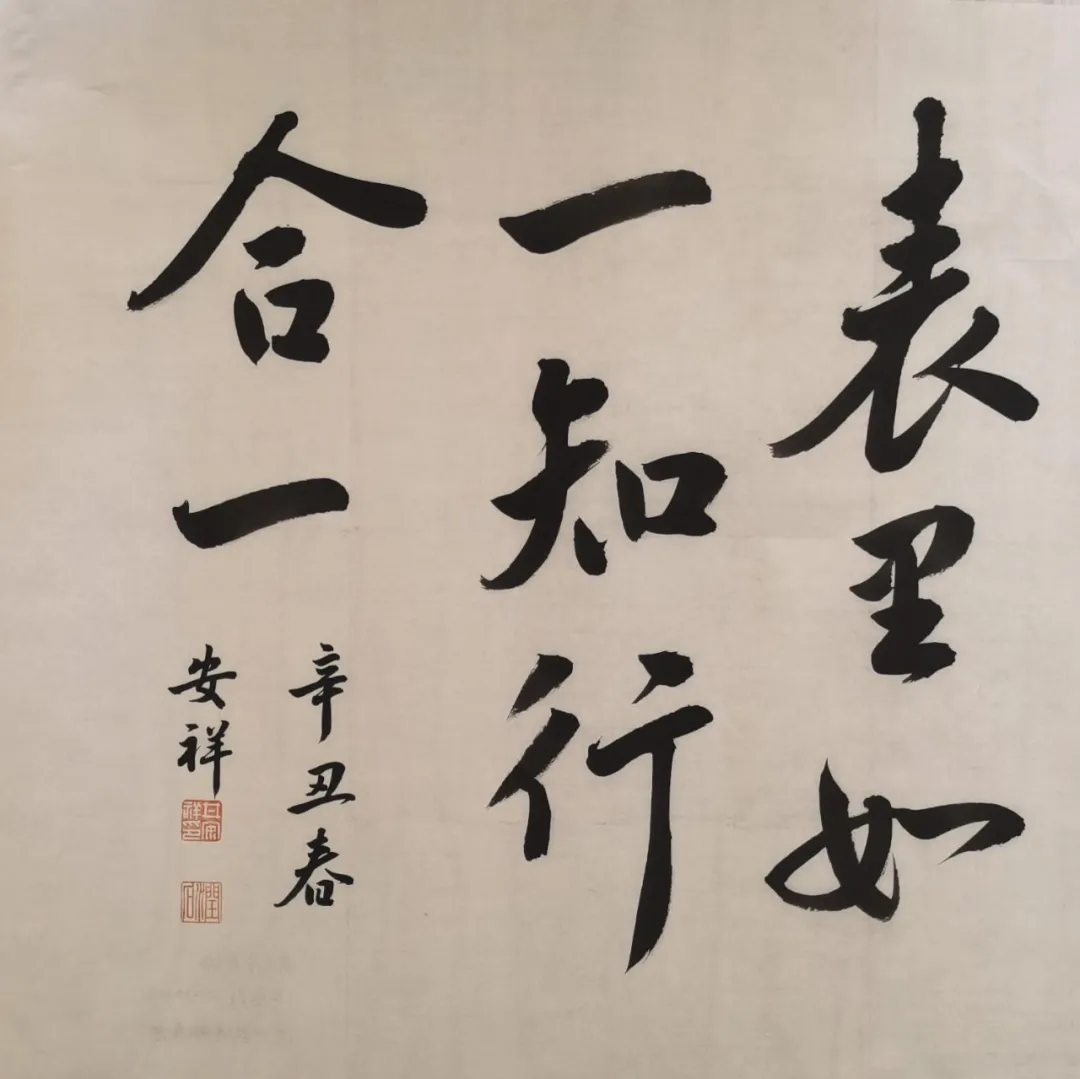 表里如
一知行
合一
辛丑春
安祥